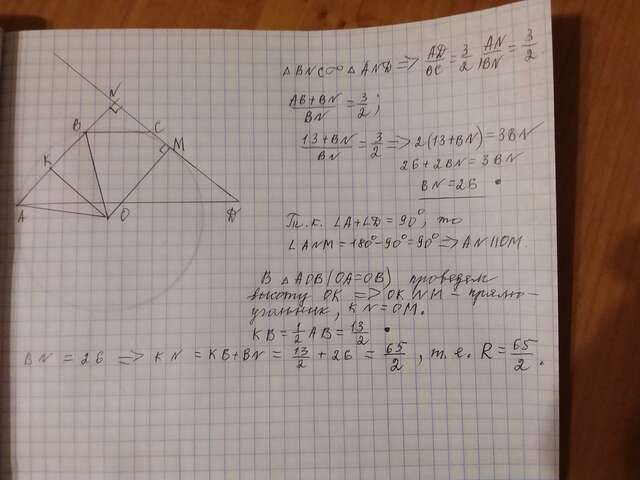 △BNC∞△AND => AD/BC = 3/2, AN/BN = 3/2.
(AB+BN)/BN = 3/2;
(13+BN)/BN = 3/2 => 2(13+BN) = 3BN
26+2BN = 3BN
BN = 26 •
Т.к. ∠A+∠D = 90°, то
∠ANM = 180°-90° = 90° => AN||OM.
В △AOB (OA=OB) проведем
высоту OK => OKNM - прямо-
угольник, KN = OM.
KB = 1/2 AB = 13/2 •
BN = 26 => KN = KB+BN = 13/2 + 26 = 65/2, т.е. R = 65/2.
N
B
C
M
K
A
O
D